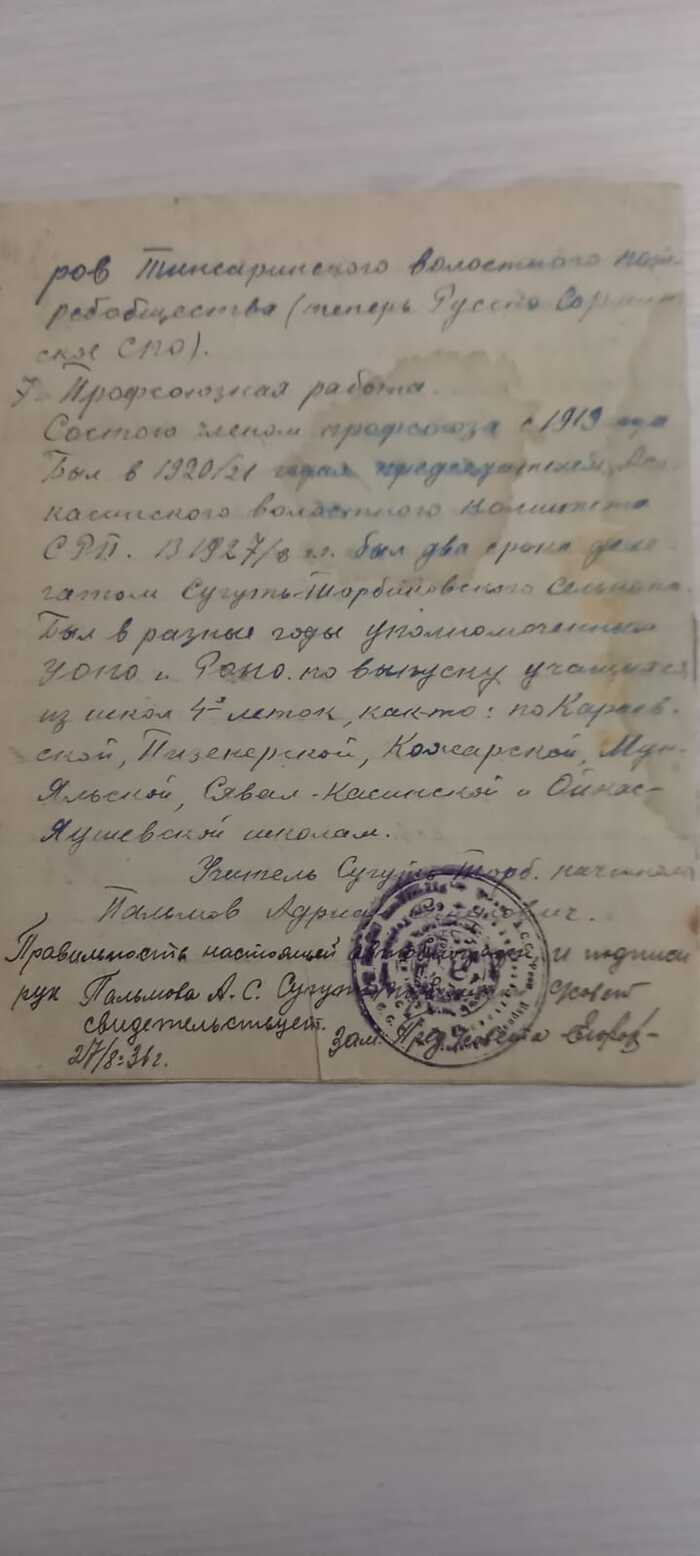 ров Тинсаринского волостного пот-
ребобщества (теперь Русско Сормин-
ское СПО).
7. Профсоюзная работа.
Состою членом профсоюза с 1919 года
Был в 1920/21 годах председателем
касинского волостного комитета
СРП. В 1927/8 г.г. был два срока деле-
гатом Сугуть-Торбиковского Сельпо.
Был в разные годы уполномоченным
УОНО и РОНО по выпуску учащихся
из школ 4-х леток, как то: по Караев-
ской, Пизенерской, Кожарской, Мун-
Яльской, Сявал-Касинской и Ойкас-
Яушевской школам.
Учитель Сугуть Торб. начшколы
Пальмов
Правильность настоящей автобиографии и подписи
рук Пальмова А. С. Сугуть совет
свидетельствует.
27/8-36 г.
Зам. Пред. с/совета